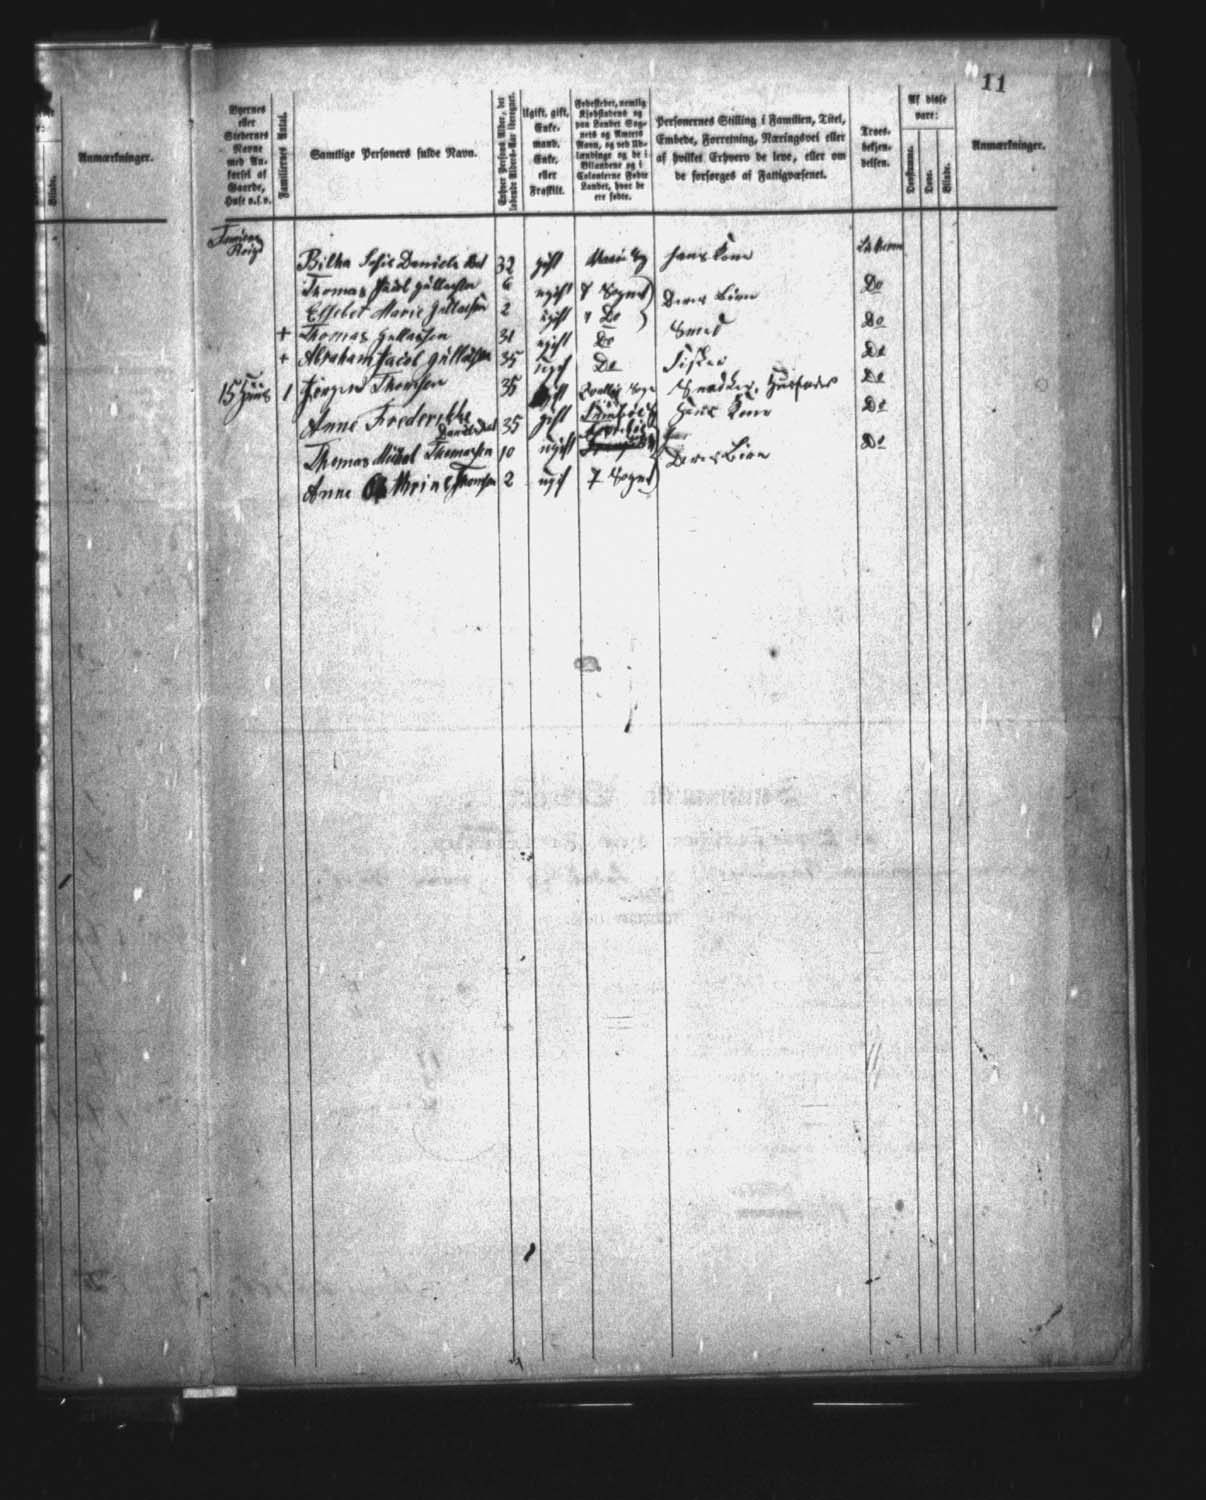 11
Anmærkninger.
Blinde.
Byernes
eller
Stedernes
Navne
med An-
førsel af
Gaarde,
Huse o.s.v.
Familiernes Antal.
Samtlige Personers fulde Navn.
Enhver Persons Alder, det
løbende Alders-Aar iberegnet.
Ugift, gift,
Enke-
mand,
Enke,
eller
Fraskilt.
Fødestedet, nemlig
Kjøbstadens og
paa Landet Sog-
nets og Amtets
Navn, og ved Ud-
lændinge og de i
Bilandene og i
Colonierne Fødte
Landet, hvor de
ere fødte.
Personernes Stilling i Familien, Titel,
Embede, Forretning, Næringsvei eller
af hvilket Erhverv de leve, eller om
de forsørges af Fattigvæsenet.
Troes-
bekjen-
delsen.
Af disse
vare:
Døvstumme.
Døve.
Blinde.
Anmærkninger.
Bilha Sofie Daniels Dat 32 gift hans Kone
Thomas Jacob Gullaksen 6 ugift T Sognet Deres Børn Do
Elsebet Marie Gullaksen 2 ugift Do
+ Thomas Gullaksen 31 ugift Do Smed Do
+ Abraham Jacob Gullaksen 35 ugift Do Fisker Do
15 Huus 1 Jørgen Thomsen 35 gift Sogn Snedker, Huusfader Do
Anne Frederikke
Daniels Dat 35 gift Hans Kone Do
Thomas Michal Thomassen 10 ugift Deres Børn Do
Anne Thomsen 2 ugift T Sognet